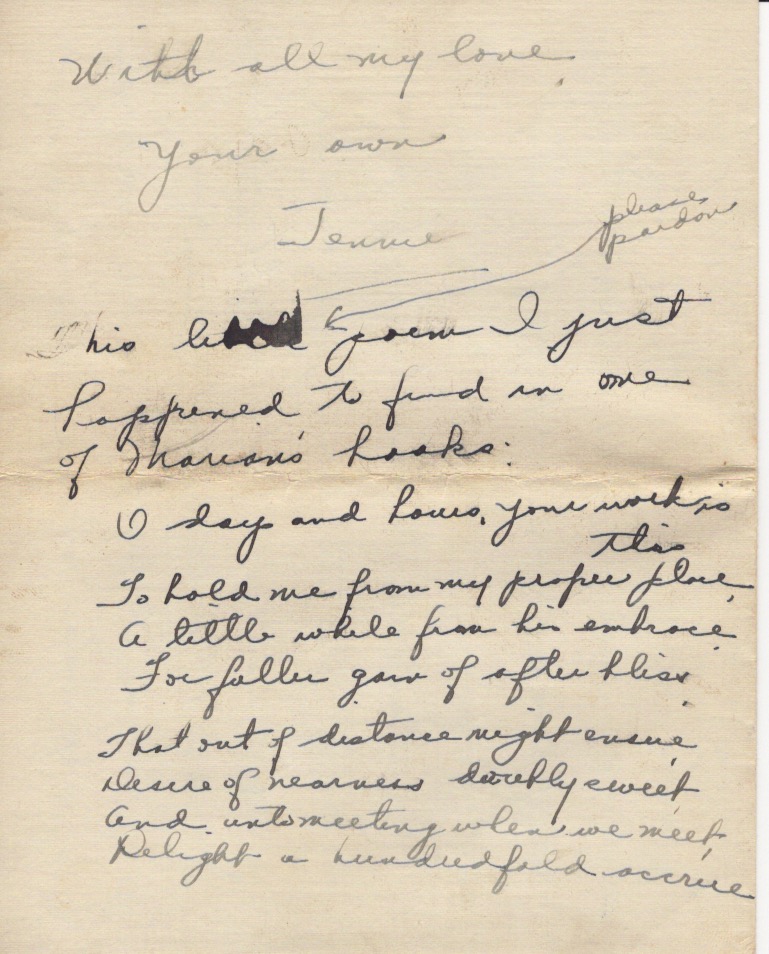 With all my love.
Your own
Jennie
please
pardon
This little poem I just
happened to find in one
of Marian's books:
O days and hours, your work is
this
To hold me from my proper place,
A little while from his embrace
For fuller gain of after bliss
That out of distance might ensue
Desire of nearness doubly sweet
And unto meeting when we meet,
Delight a hundredfold accrue